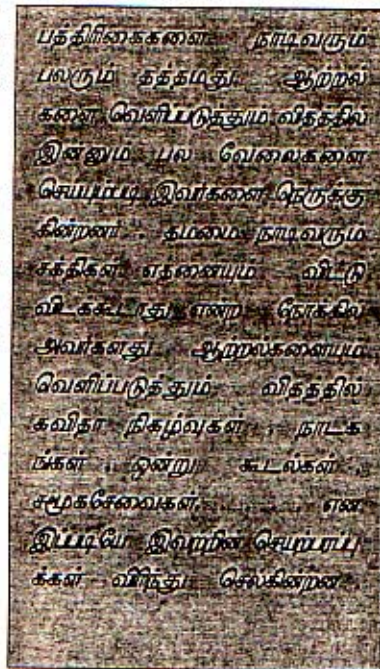 பத்திரிகைகளை நாடிவரும்
பலரும் தத்தமது ஆற்றல்
களை வெளிப்படுத்தும் விதத்தில்
இன்னும் பல வேலைகளை
செய்யும்படி இவர்களை நெருக்கு
கின்றனர். தம்மை நாடிவரும்
சக்திகள் எதனையும் விட்டு
விடக்கூடாது என்ற நோக்கில்
அவர்களது ஆற்றல்களையும்
வெளிப்படுத்தும் விதத்தில்
கவிதா நிகழ்வுகள், நாடக
ங்கள், ஒன்று கூடல்கள்,
சமூகசேவைகள்........... என
இப்படியே இவற்றின் செயற்பரப்பு
க்கள் விரிந்து செல்கின்றன.